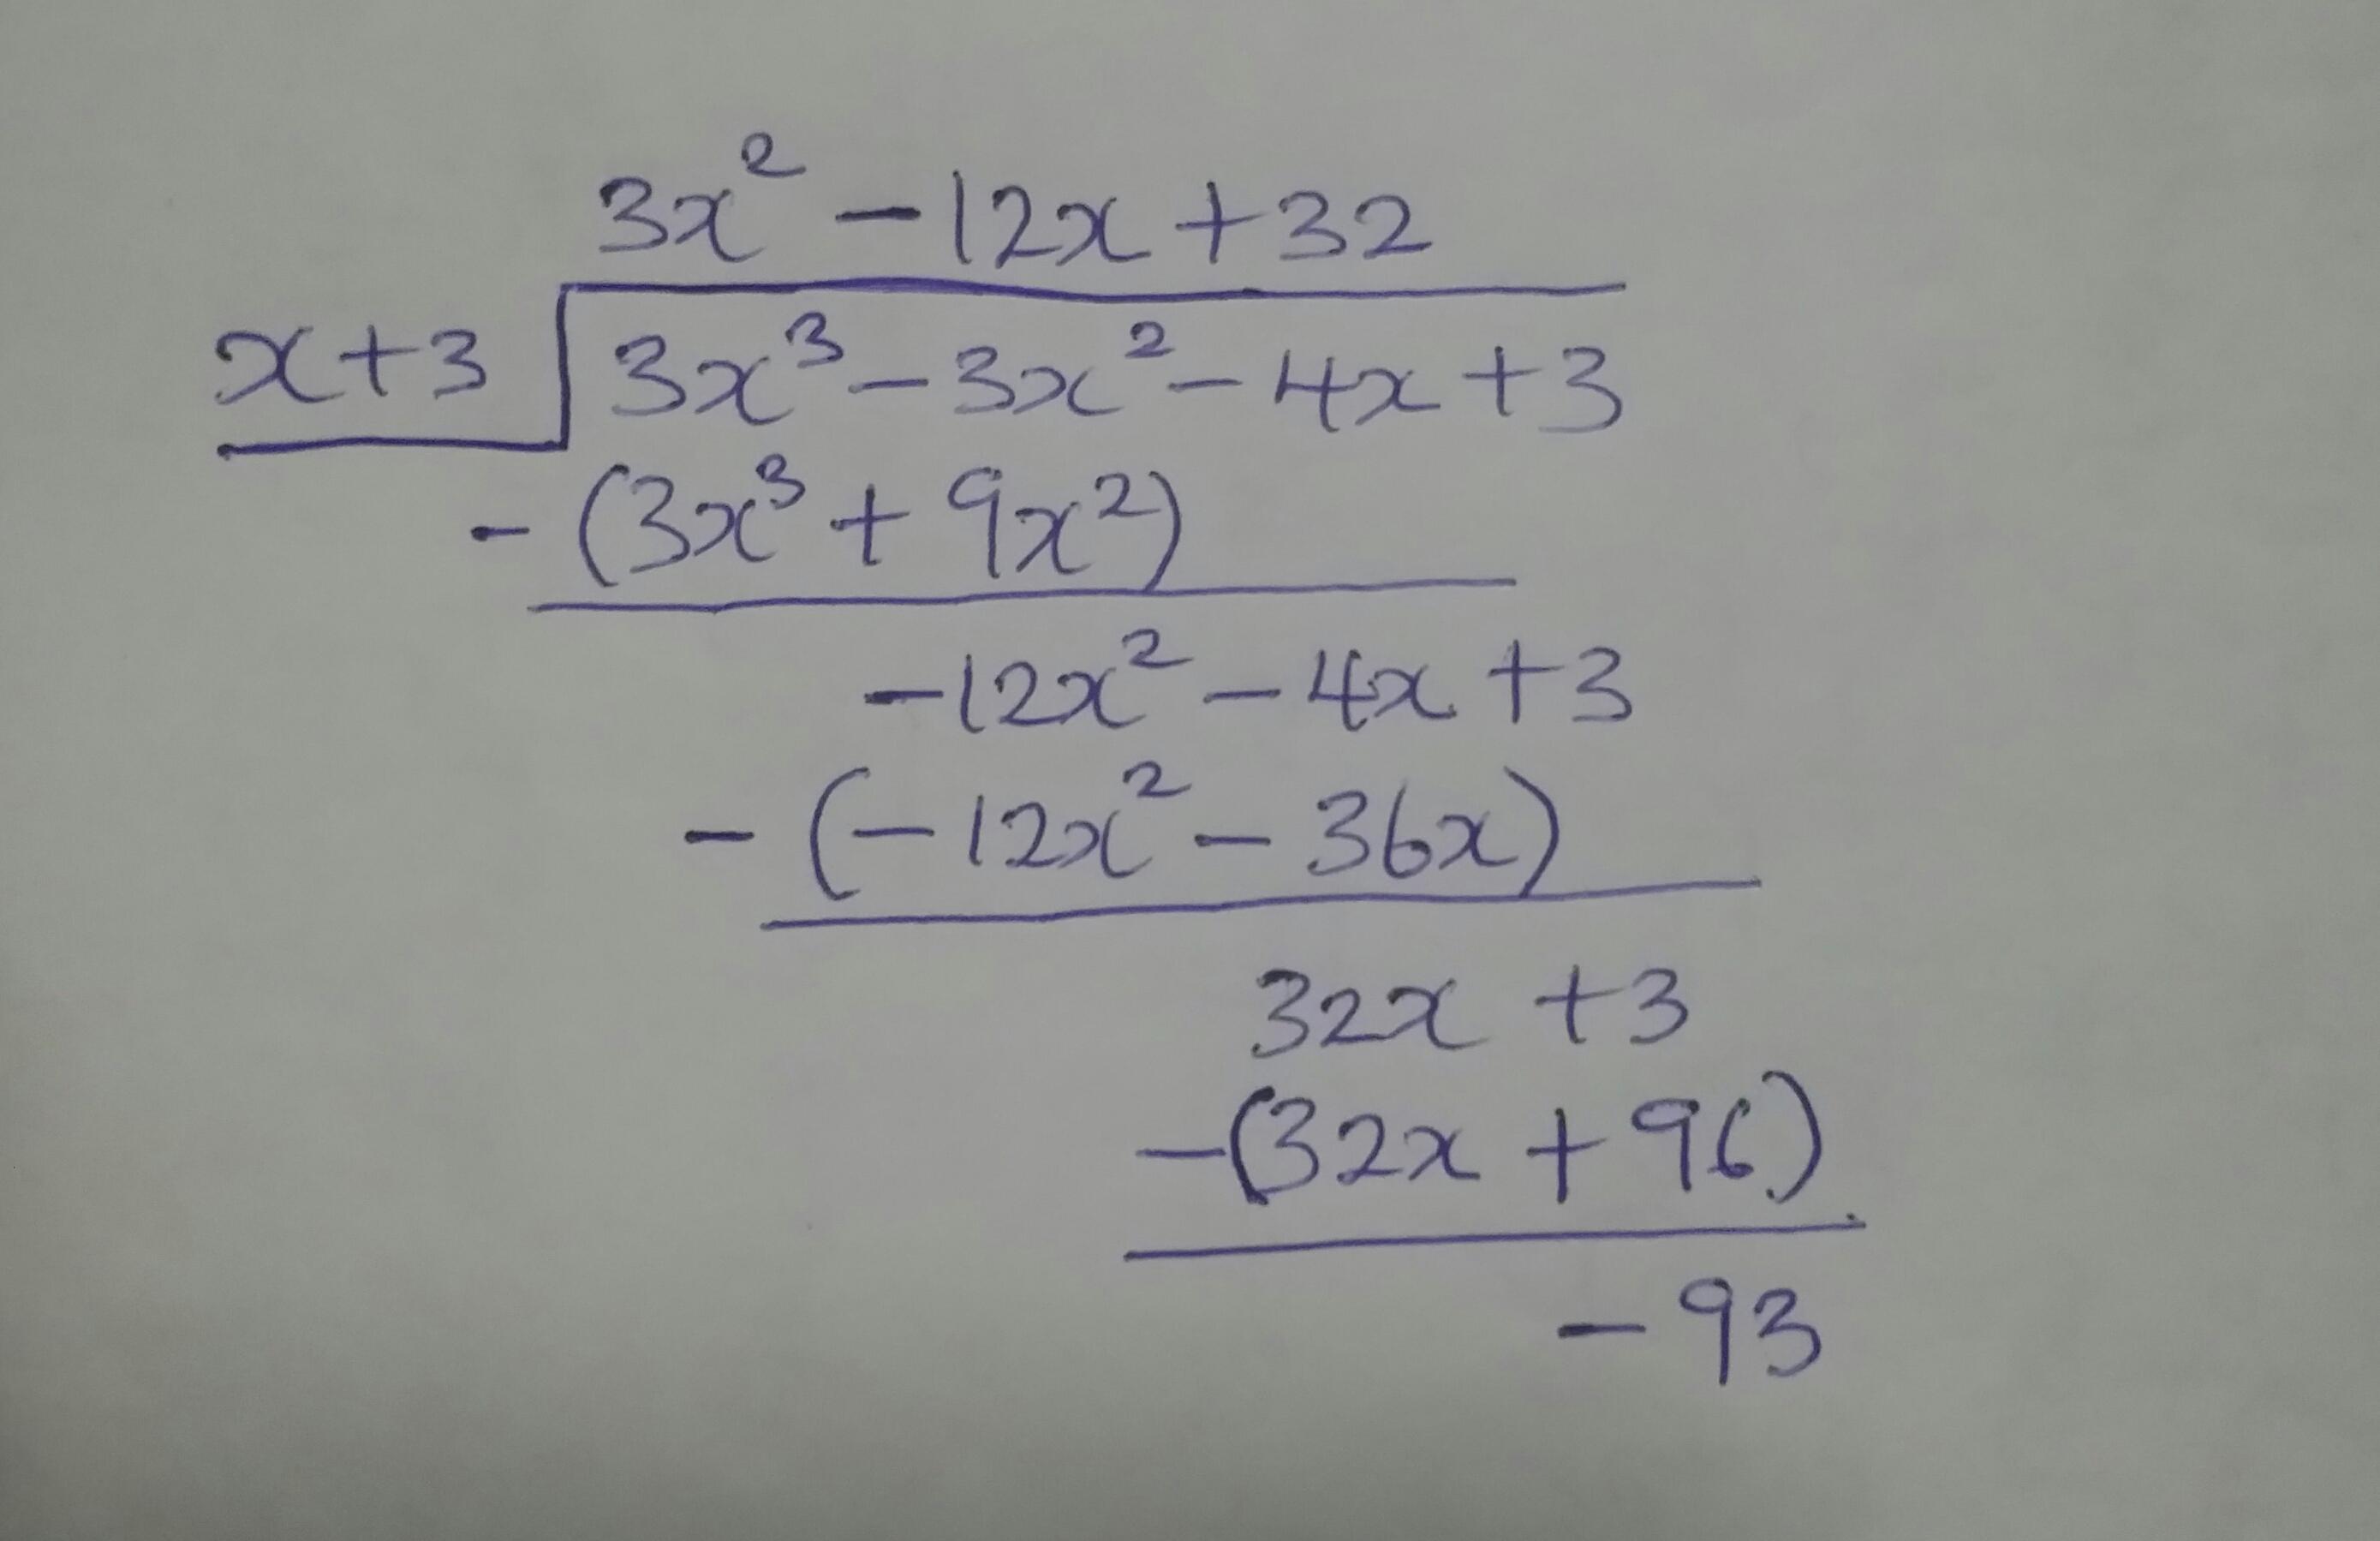 3x² - 12x + 32
x + 3 3x³ - 3x² - 4x + 3
- (3x³ + 9x²)
-12x² - 4x + 3
- (-12x² - 36x)
32x + 3
-(32x + 96)
- 93